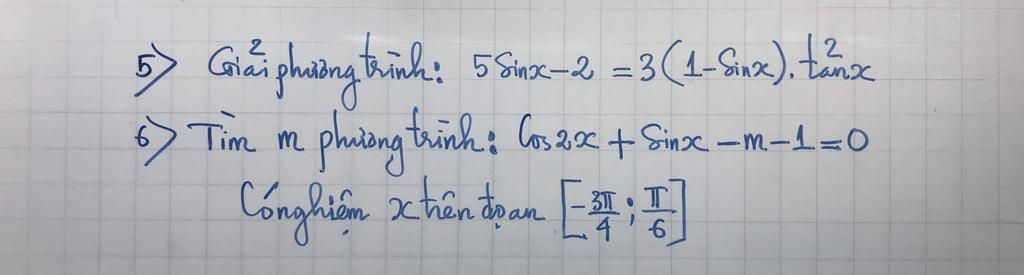 5> Giải phương trình: 5 Sinx - 2 = 3(1 - Sinx).tan²x
6> Tìm m phương trình: Cos2x + Sinx - m - 1 = 0
Có nghiệm x trên đoạn [-3π/4; π/6]